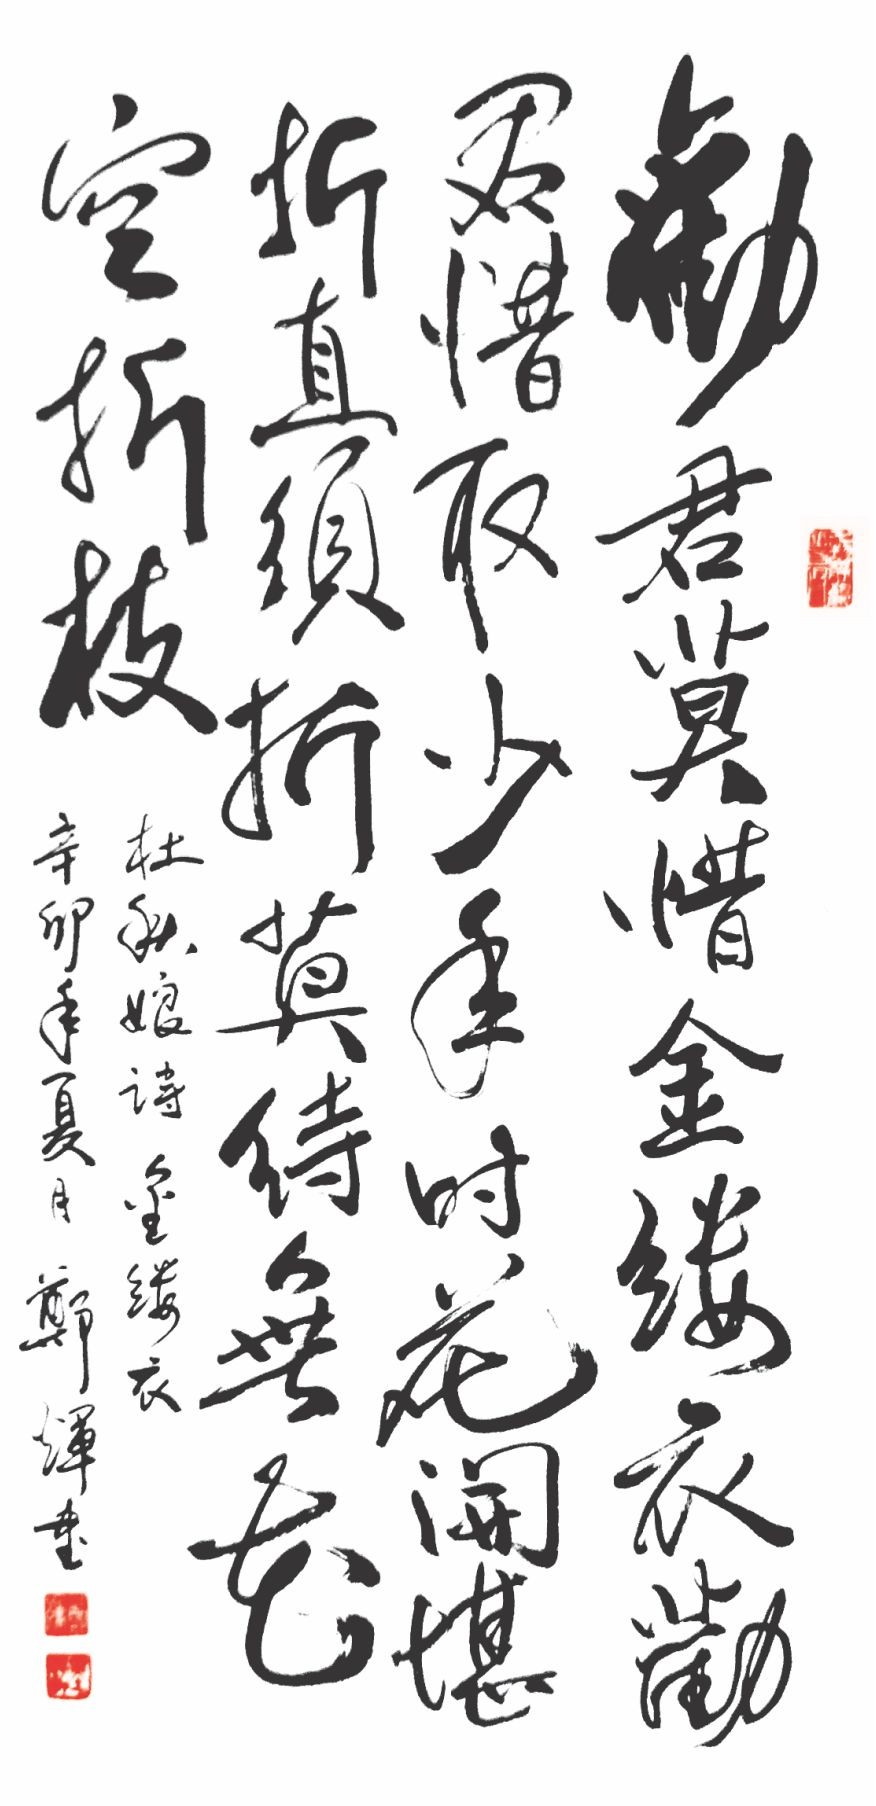 勸君莫惜金缕衣勸
君惜取少年时花開堪
折直須折莫待無花
空折枝
杜秋娘诗金缕衣
辛卯年夏月鄭輝书